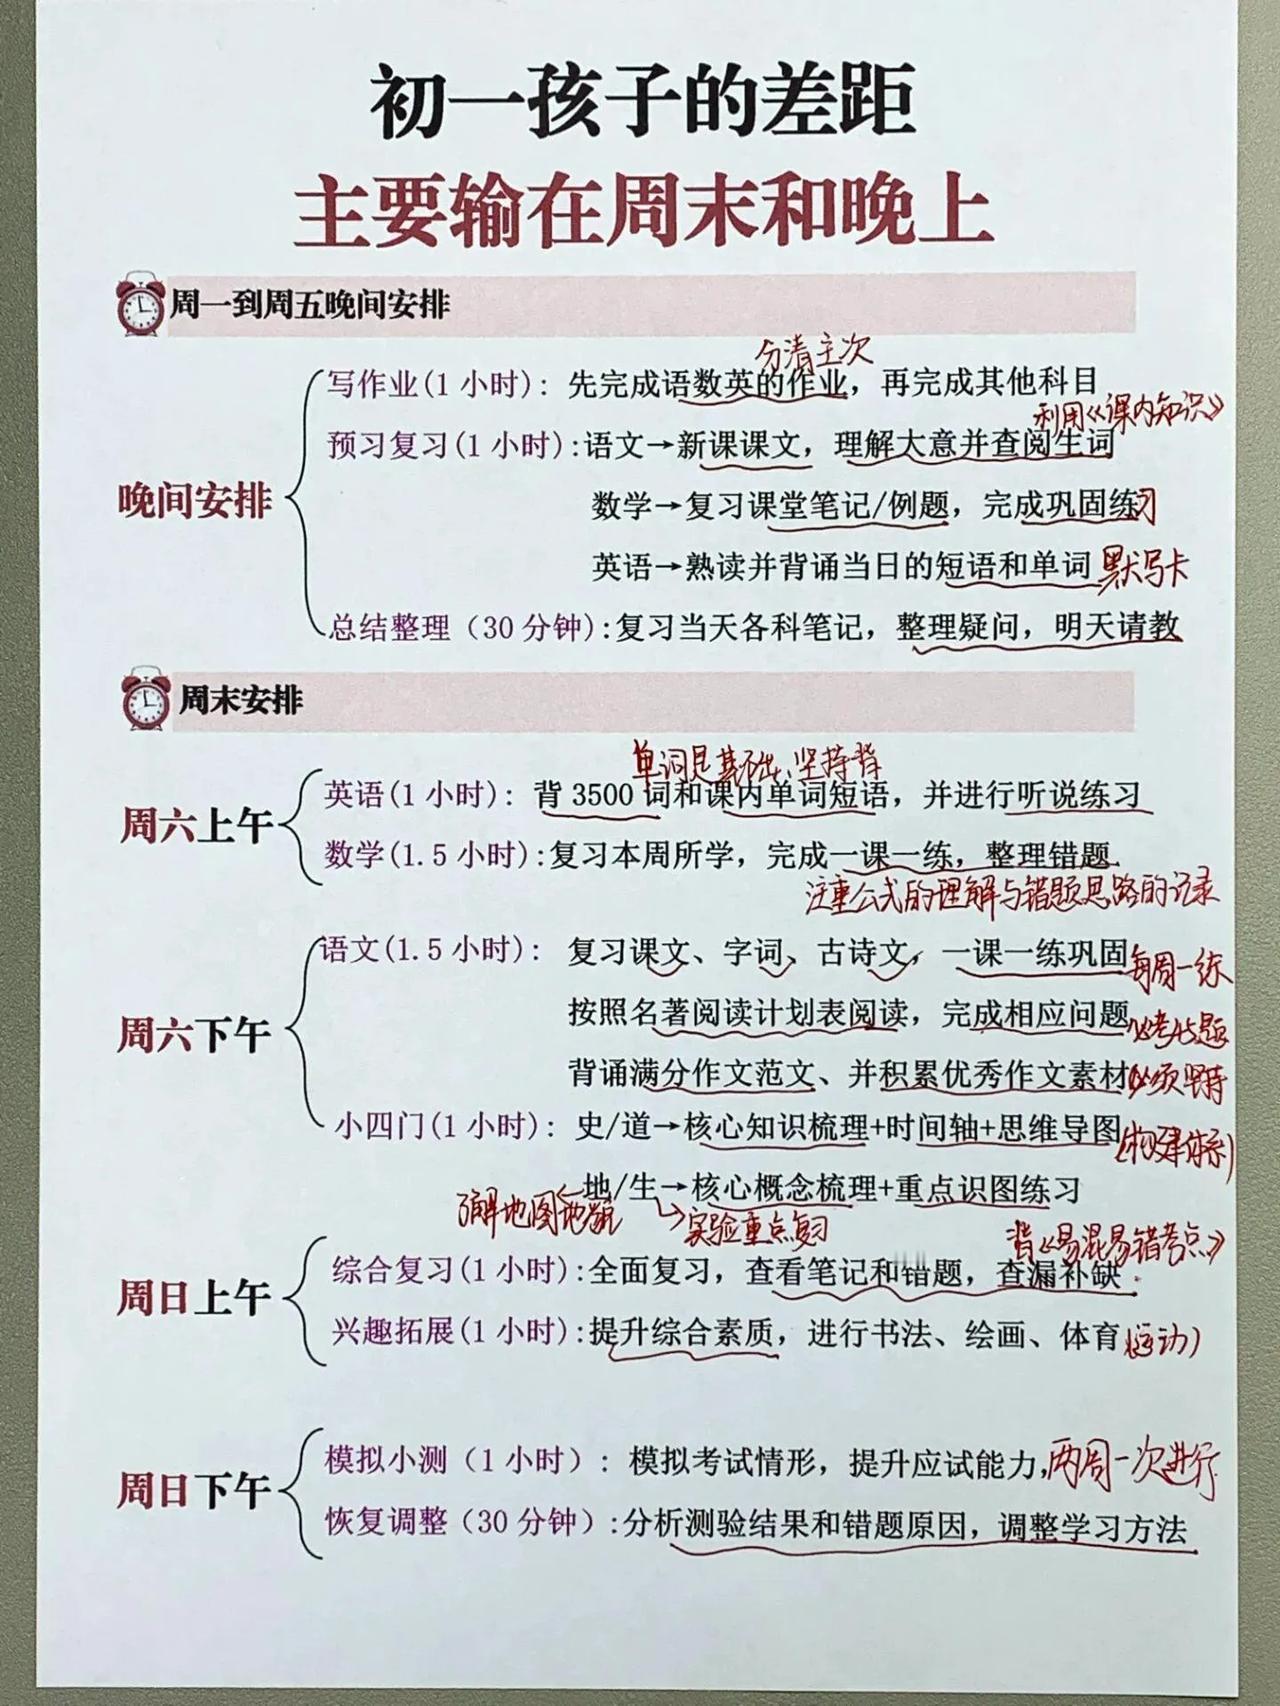 初一孩子的差距
主要输在周末和晚上
周一到周五晚间安排
分清主次
写作业(1小时)：先完成语数英的作业，再完成其他科目
利用《课内知识》
预习复习(1小时)：语文→新课课文，理解大意并查阅生词
晚间安排
数学→复习课堂笔记/例题，完成巩固练习
英语→熟读并背诵当日的短语和单词 默写卡
总结整理（30分钟)：复习当天各科笔记，整理疑问，明天请教
周末安排
单词是基础、坚持背
英语(1小时)：背3500词和课内单词短语，并进行听说练习
周六上午
数学(1.5小时)：复习本周所学，完成一课一练，整理错题.
注重公式的理解与错题思路的记录
语文(1.5小时)：复习课文、字词、古诗文，一课一练巩固 每周一练
按照名著阅读计划表阅读，完成相应问题 必考大题
周六下午
背诵满分作文范文、并积累优秀作文素材 必须坚持
小四门(1小时)：史/道→核心知识梳理+时间轴+思维导图(构建体系)
地/生→核心概念梳理+重点识图练习
了解地图
实验重点复习
背《易混易错考点》
综合复习(1小时)：全面复习，查看笔记和错题，查漏补缺.
周日上午
兴趣拓展(1小时)：提升综合素质，进行书法、绘画、体育(运动)
模拟小测（1小时）：模拟考试情形，提升应试能力，两周一次进行
周日下午
恢复调整（30分钟）：分析测验结果和错题原因，调整学习方法